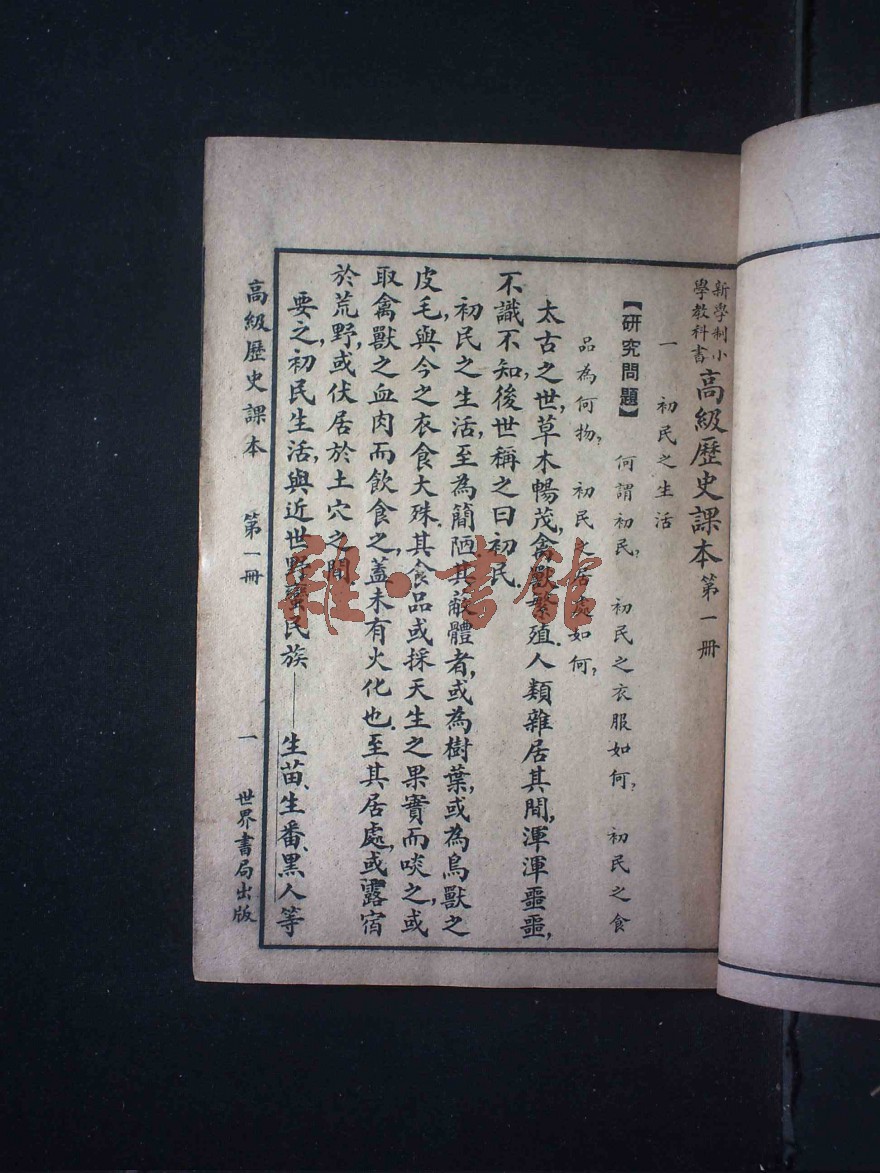 新學制小
學教科書
高級歷史課本第一冊
一 初民之生活
【研究問題】 何謂初民？ 初民之衣服如何？ 初民之食
品為何物？ 初民之居處如何？
太古之世，草木暢茂，禽獸繁殖，人類雜居其間，渾渾噩噩，
不識不知，後世稱之曰初民。
初民之生活，至為簡陋，其蔽體者，或為樹葉，或為鳥獸之
皮毛，與今之衣食大殊。其食品或採天生之果實而啖之，或
取禽獸之血肉而飲食之，蓋未有火化也。至其居處，或露宿
於荒野，或伏居於土穴之間。
要之，初民生活，與近世野蠻民族——生苗、生番、黑人等
高級歷史課本 第一冊 一 世界書局出版
雜·書館